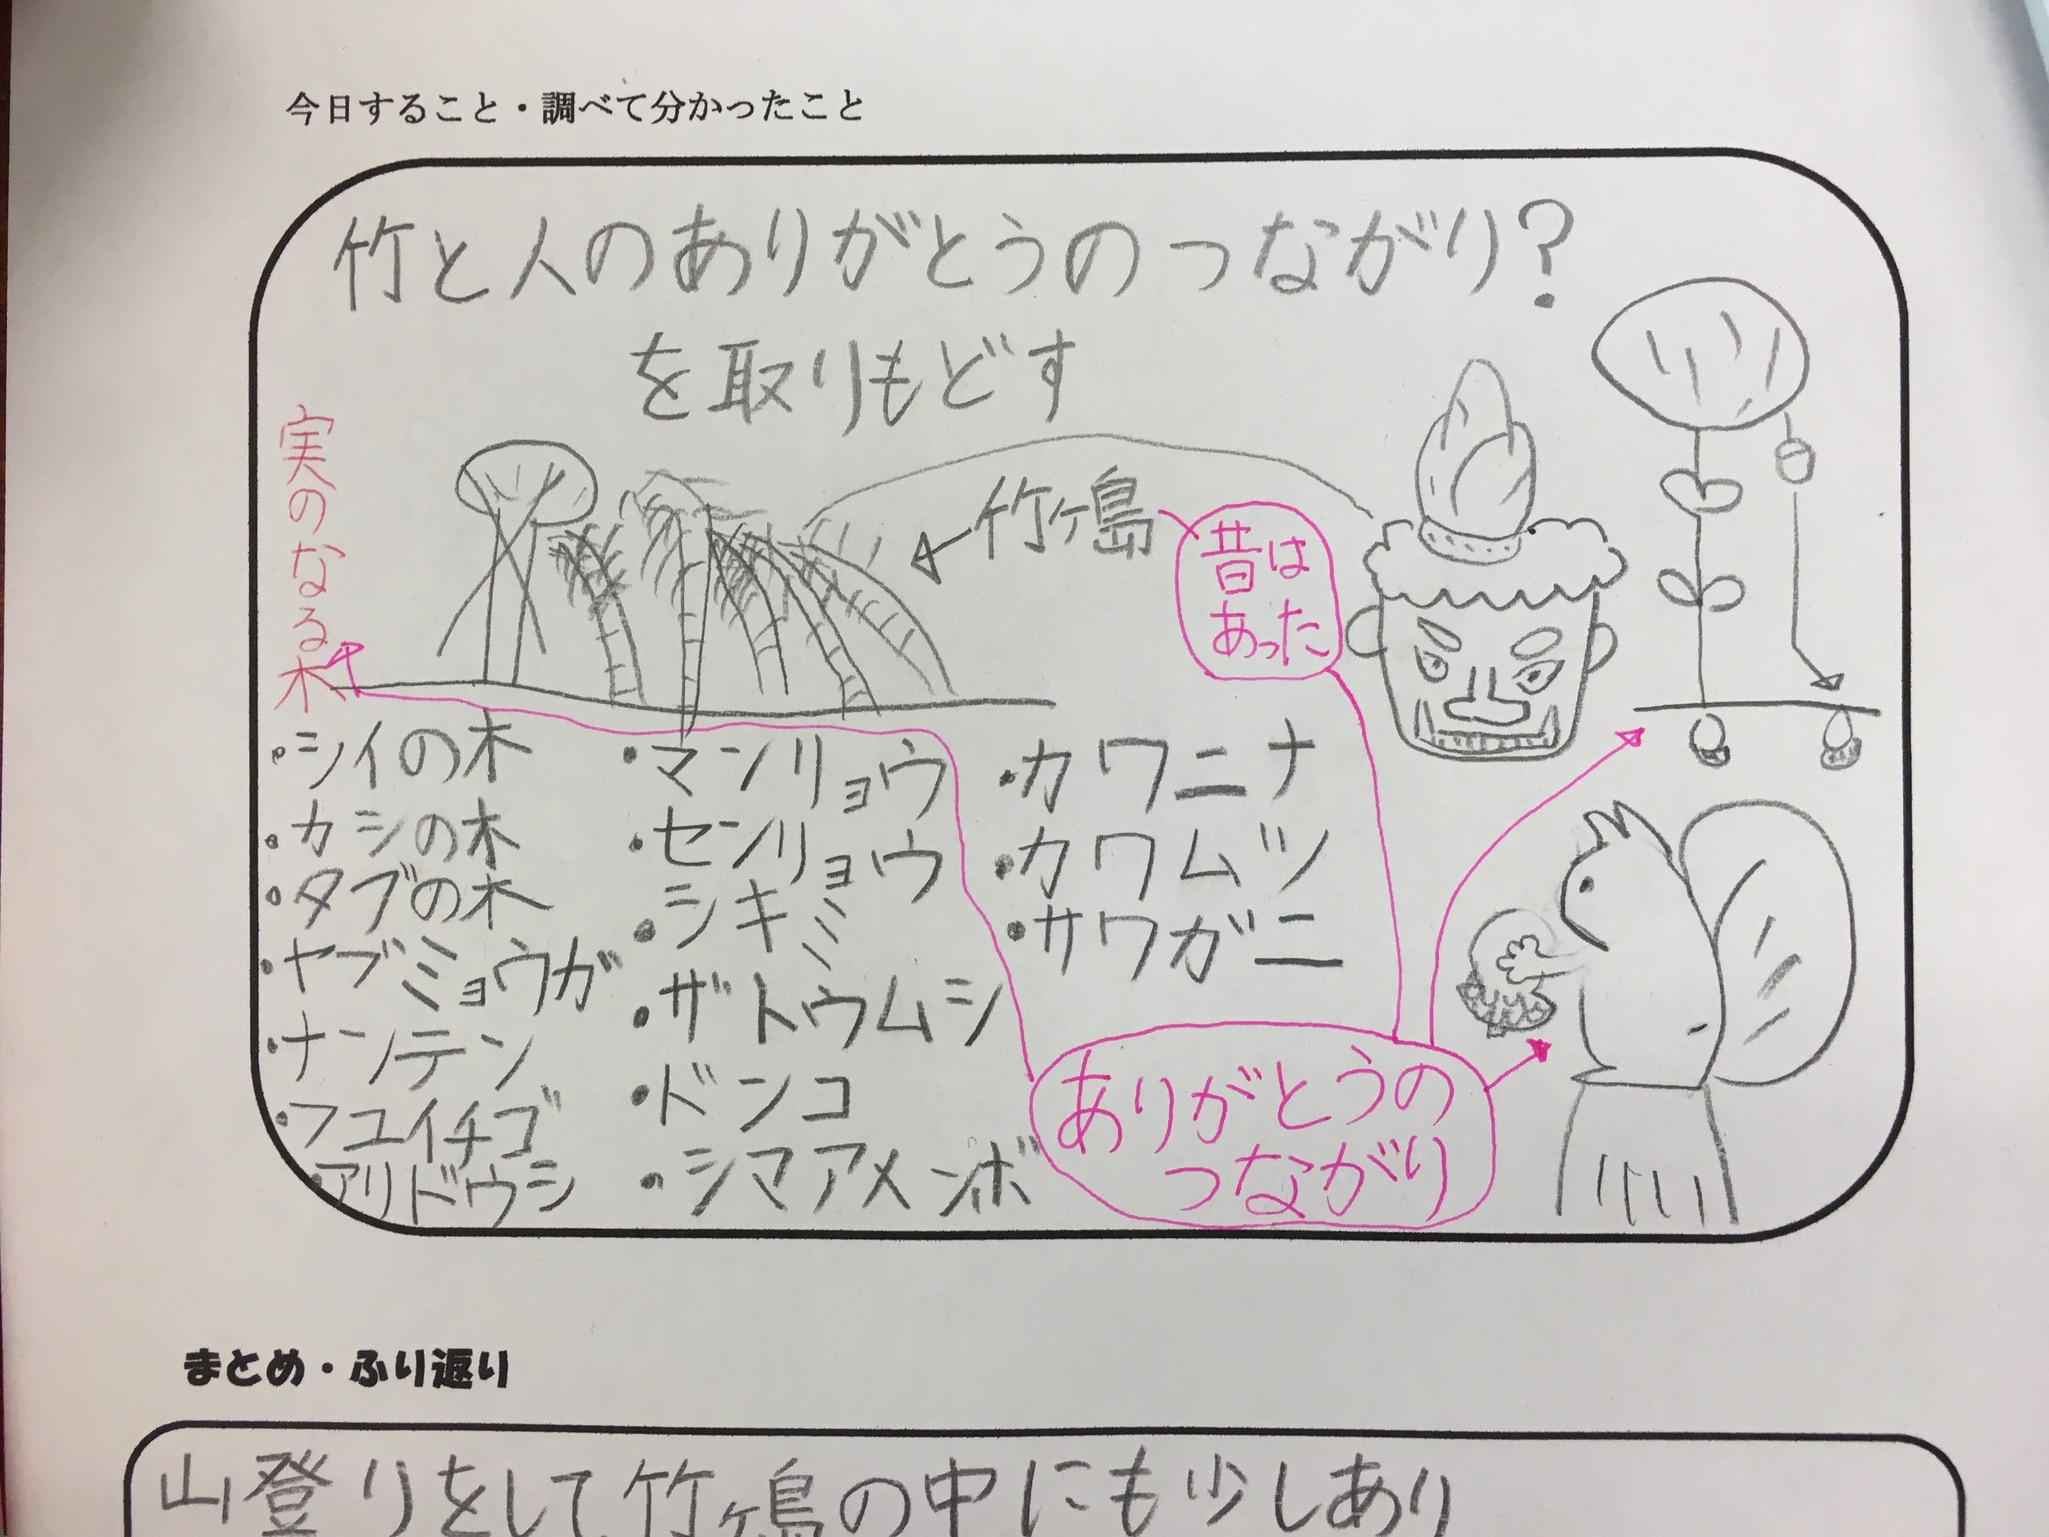 今日すること・調べて分かったこと
竹と人のありがとうのつながり?
を取りもどす
実のなる木
竹ヶ島
昔は
あった
・シイの木
・カシの木
・タブの木
・ヤブミョウガ
・ナンテン
・フユイチゴ
・アリドウシ
・マンリョウ
・センリョウ
・シキミ
・ザトウムシ
・ドンコ
・シマアメンボ
・カワニナ
・カワムツ
・サワガニ
ありがとうの
つながり
まとめ・ふり返り
山登りをして竹ヶ島の中にも少しあり